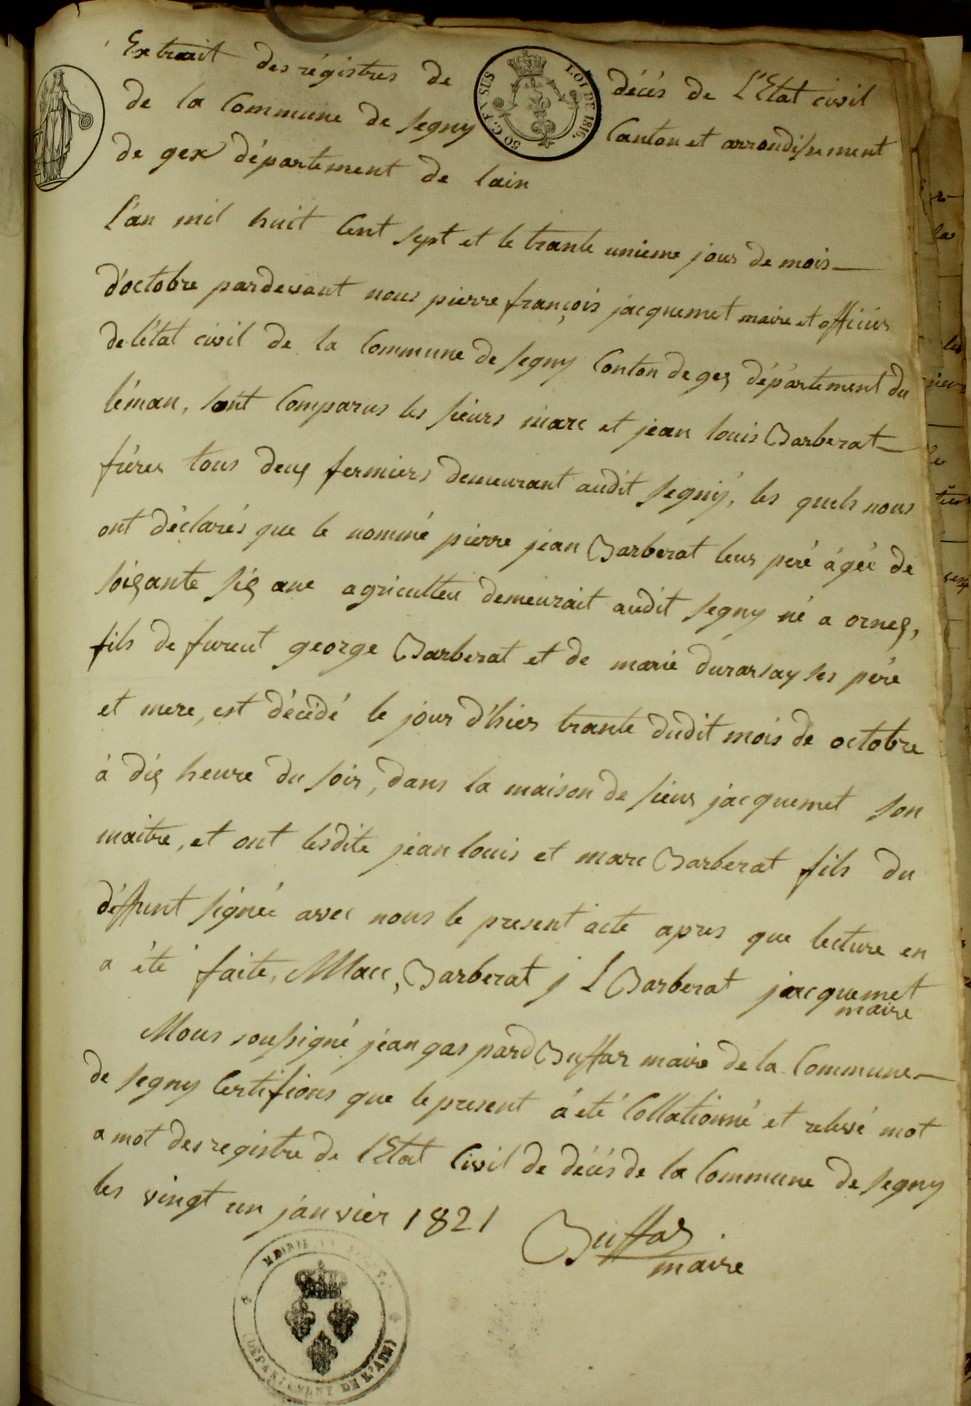 Extrait des régistres de décés de l'Etat civil
de la Commune de Segny Canton et arrondissement
de gex département de lain
L'an mil huit Cent sept et le trante unieme jour de mois
d'octobre pardevant nous pierre françois jacquemet maire et officier
de l'état civil de la Commune de Segny Conton de gex département du
léman, sont Comparus les sieurs marc et jean louis Barberat
fréres tous deux fermiers demeurant audit Segny, les quels nous
ont déclarés que le nommé pierre jean Barberat leur peré ágéé de
soixante six ane agriculteu demeurait audit Segny né a ornex,
fils de furent george Barberat et de marie ses pére
et mere, est décédé le jour d'hier trante dudit mois de octobre
à dix heure du soir, dans la maison de sieur jacquemet son
maitre, et ont lesdite jean louis et marc Barberat fils du
déffunt signéé avec nous le present acte apres que lecture en
a été faite, Marc, Barberat j L Barberat jacquemet
maire
Nous soussigné jean gaspard Buffar maire de la Commune
de Segny Certifions que le present á été Collationné et relevé mot
a mot des registre de l'Etat Civil de décés de la Commune de Segny
les vingt un janvier 1821
Buffar
maire
50 C. EN SUS
LOI DE 1816.
MAIRIE
(DÉPARTEMENT DE L'AIN)